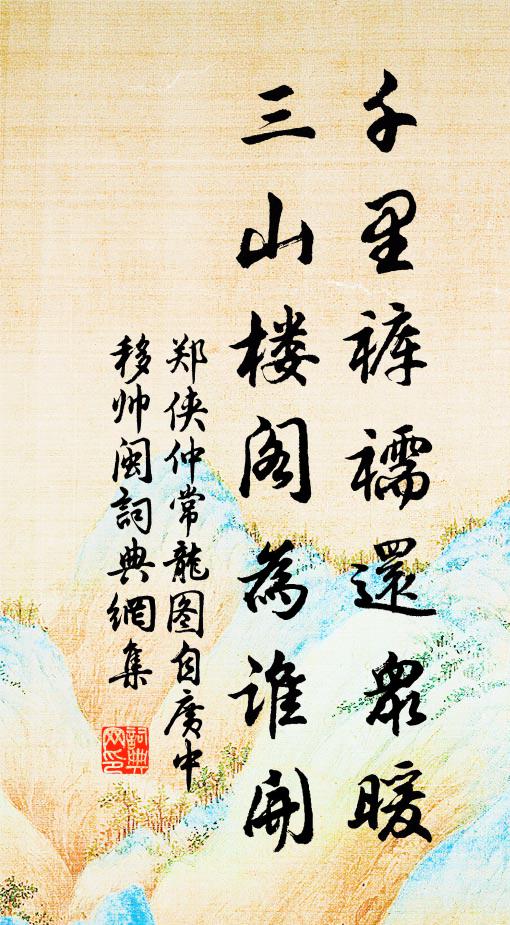 千里裤襦還眾暖
三山楼阁為誰開
郑侠仲常龍图自廣中
移帅闽詞典網集
詞典网印